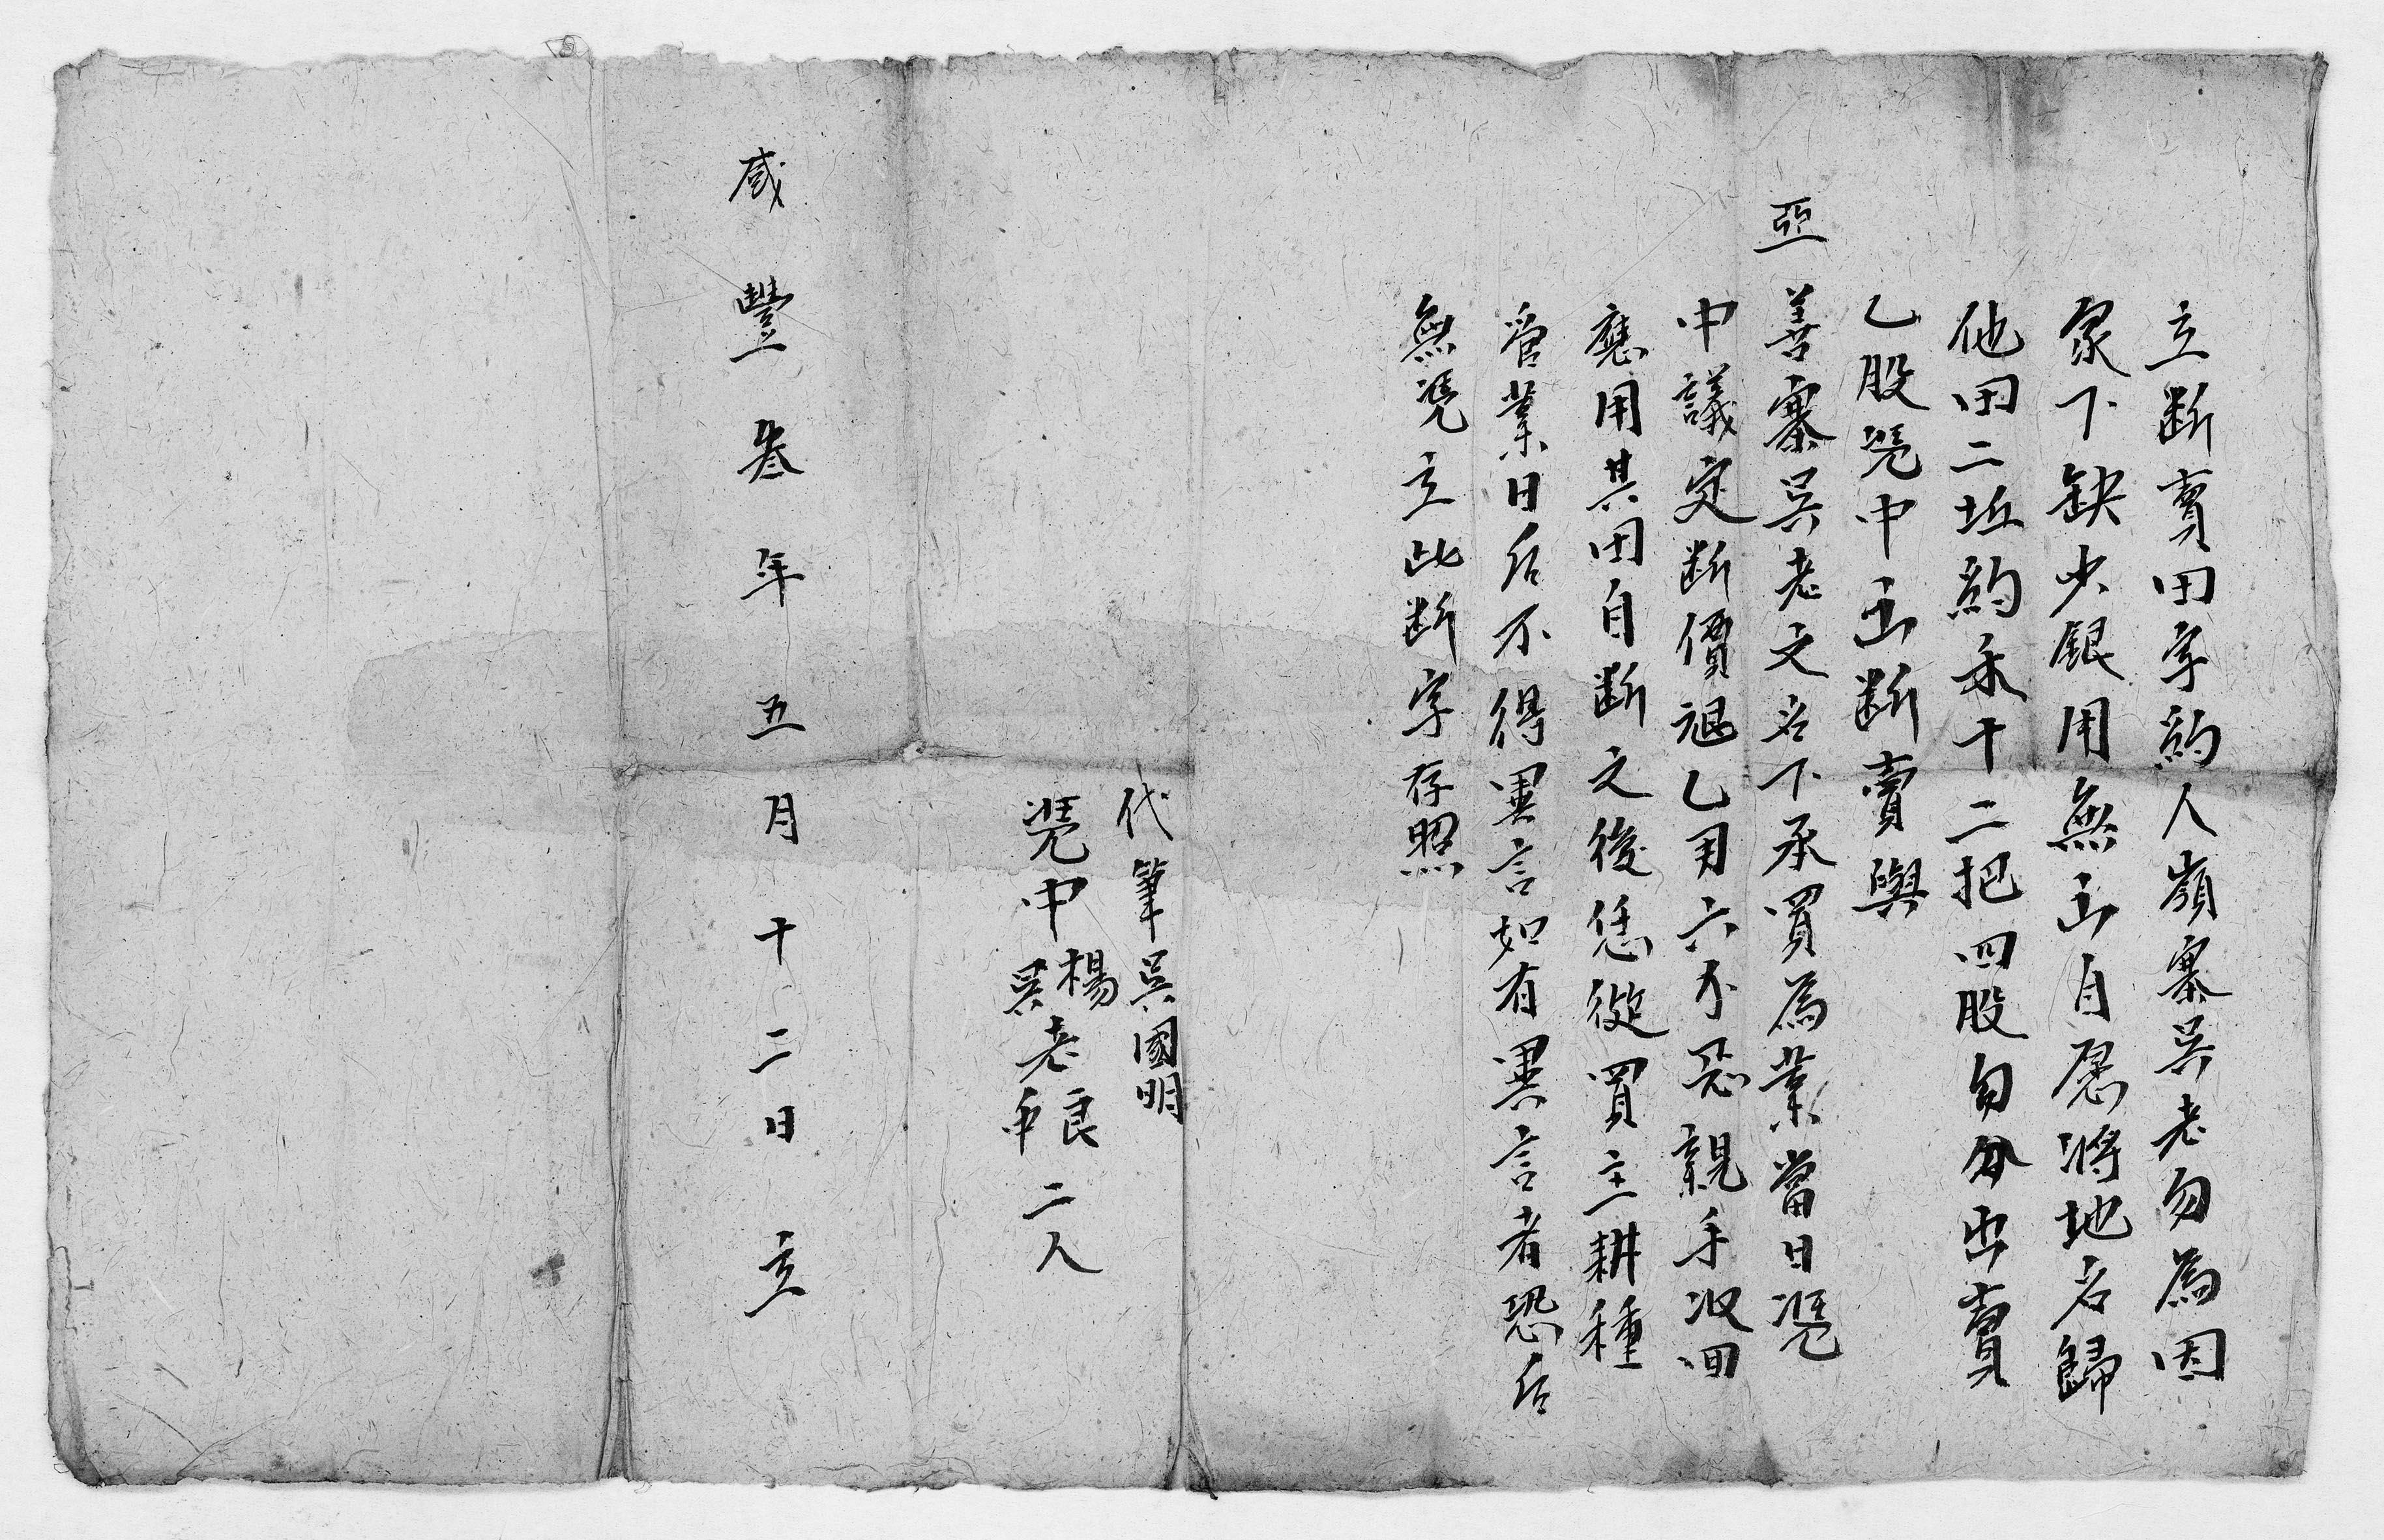 立断賣田字約人嶺寨吳老勿為因
家下缺少銀用無出自愿將地名歸
他田二坵約禾十二把四股勻分出賣
乙股凴中出断賣與
亞善寨吳老文名下承買為業當日凴
中議定断價銀乙両六不忍親手収回
應用其田自断之後恁從買主耕種
管業日后不得異言如有異言者恐后
無凴立此断字存照
代筆吳國明
凴中 楊老良 吳老 二人
咸豐叁年五月十二日立